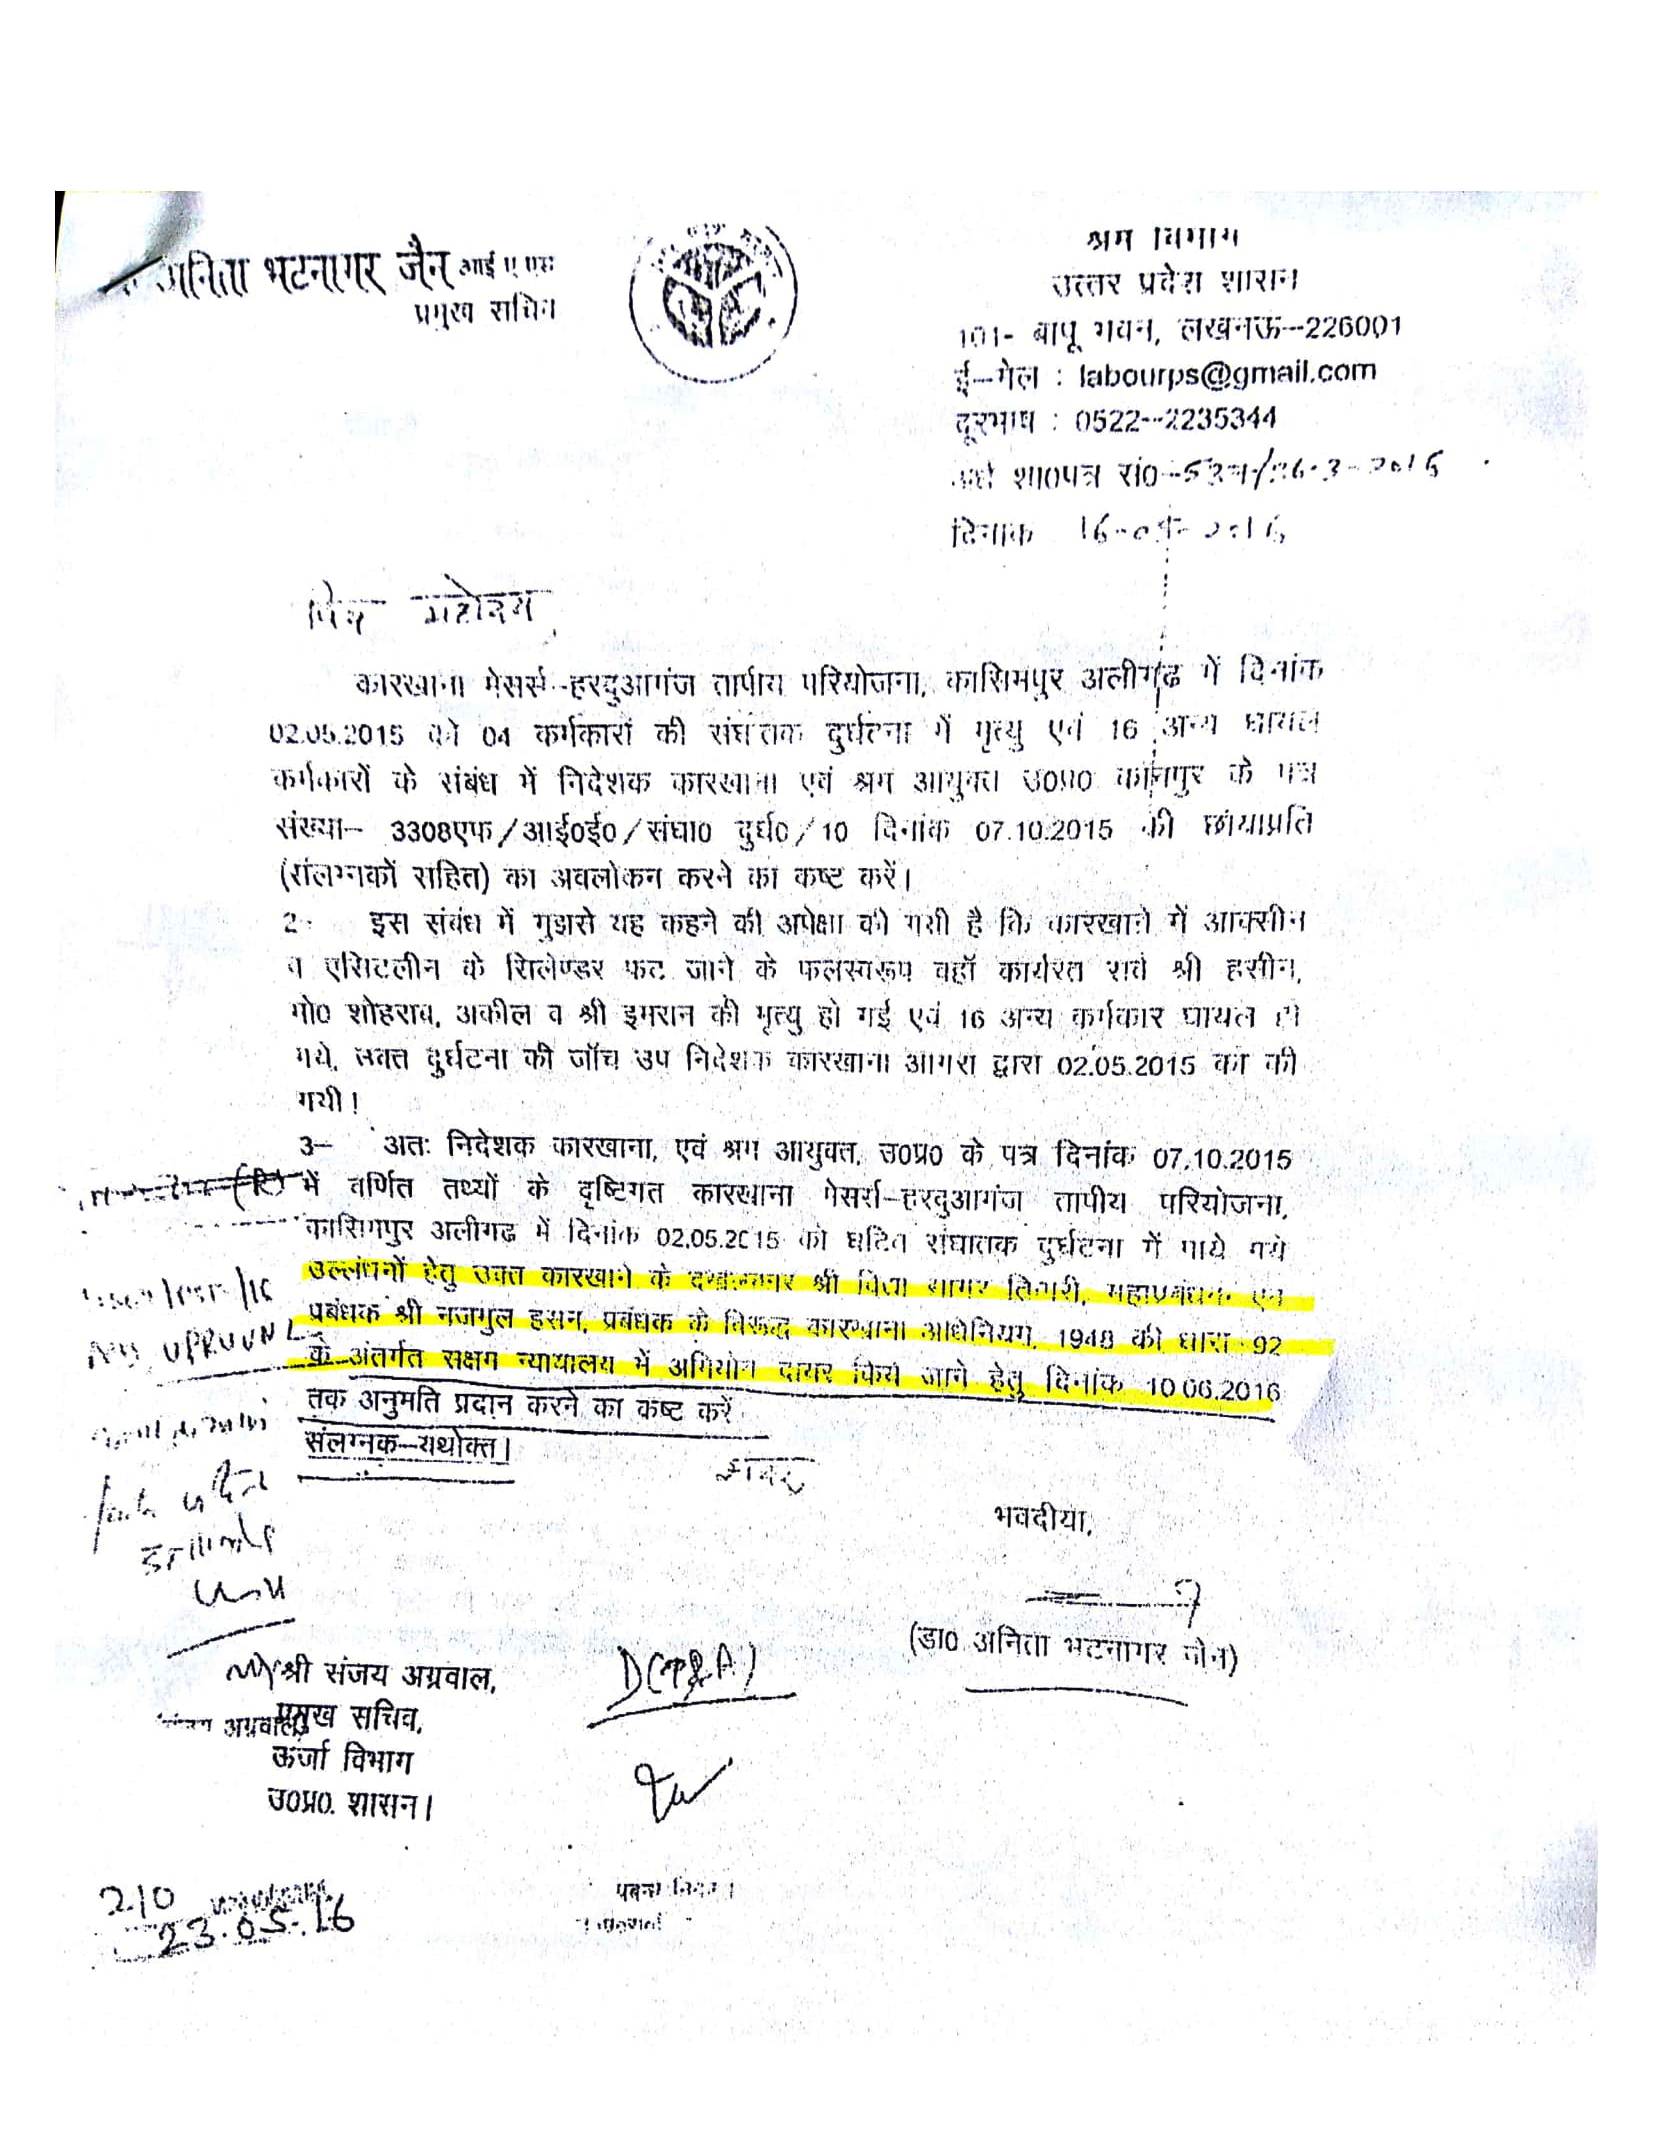 अनिता भटनागर जैन आई ए एस
प्रमुख सचिव
श्रम विभाग
उत्तर प्रदेश शासन
101- बापू भवन, लखनऊ--226001
ई-मेल : labourps@gmail.com
दूरभाष : 0522--2235344
शा0पत्र सं0-
दिनांक
प्रिय महोदय,
कारखाना मेसर्स-हरदुआगंज तापीय परियोजना, कासिमपुर अलीगढ में दिनांक
02.05.2015 को 04 कर्मकारों की संघातक दुर्घटना में मृत्यु एवं 16 अन्य घायल
कर्मकारों के संबंध में निदेशक कारखाना एवं श्रम आयुक्त उ0प्र0 कानपुर के पत्र
संख्या- 3308एफ/आई0ई0/संघा0 दुर्घ0/10 दिनांक 07.10.2015 की छायाप्रति
(संलग्नकों सहित) का अवलोकन करने का कष्ट करें।
2- इस संबंध में मुझसे यह कहने की अपेक्षा की गयी है कि कारखाने में आक्सीन
व एसिटलीन के सिलेण्डर फट जाने के फलस्वरूप वहॉ कार्यरत सर्व श्री हसीन,
मो0 शोहराव, अकील व श्री इमरान की मृत्यु हो गई एवं 16 अन्य कर्मकार घायल हो
गये, उक्त दुर्घटना की जॉच उप निदेशक कारखाना आगरा द्वारा 02.05.2015 को की
गयी।
3- अतः निदेशक कारखाना, एवं श्रम आयुक्त, उ0प्र0 के पत्र दिनांक 07.10.2015
में वर्णित तथ्यों के दृष्टिगत कारखाना मेसर्स-हरदुआगंज तापीय परियोजना,
कासिमपुर अलीगढ में दिनांक 02.05.2015 को घटित संघातक दुर्घटना में पाये गये
उल्लंघनों हेतु उक्त कारखाने के श्री सागर तिवारी, महाप्रबंधक एवं
प्रबंधक श्री नजमुल हसन, प्रबंधक के विरूद्ध कारखाना अधिनियम, 1948 की धारा-92
के अंतर्गत सक्षम न्यायालय में अभियोग दायर किये जाने हेतु दिनांक 10.06.2016
तक अनुमति प्रदान करने का कष्ट करें
संलग्नक-यथोक्त।
सादर
भवदीया,
(डा0 अनिता भटनागर जैन)
श्री संजय अग्रवाल,
प्रमुख सचिव,
अग्रवाल
ऊर्जा विभाग
उ0प्र0. शासन।
D(P&A)
210
23.05.16